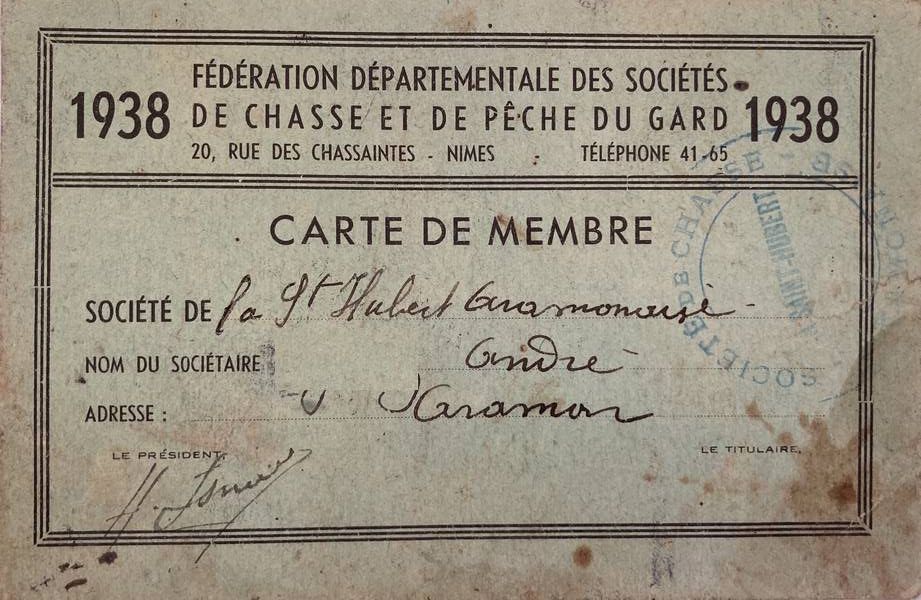 1938 FÉDÉRATION DÉPARTEMENTALE DES SOCIÉTÉS 1938
DE CHASSE ET DE PÊCHE DU GARD
20, RUE DES CHASSAINTES - NIMES - TÉLÉPHONE 41-65
CARTE DE MEMBRE
SOCIÉTÉ DE la St Hubert Aramonaise
NOM DU SOCIÉTAIRE André
ADRESSE : Aramon
LE PRÉSIDENT, LE TITULAIRE,
SOCIÉTÉ DE CHASSE
SAINT-HUBERT